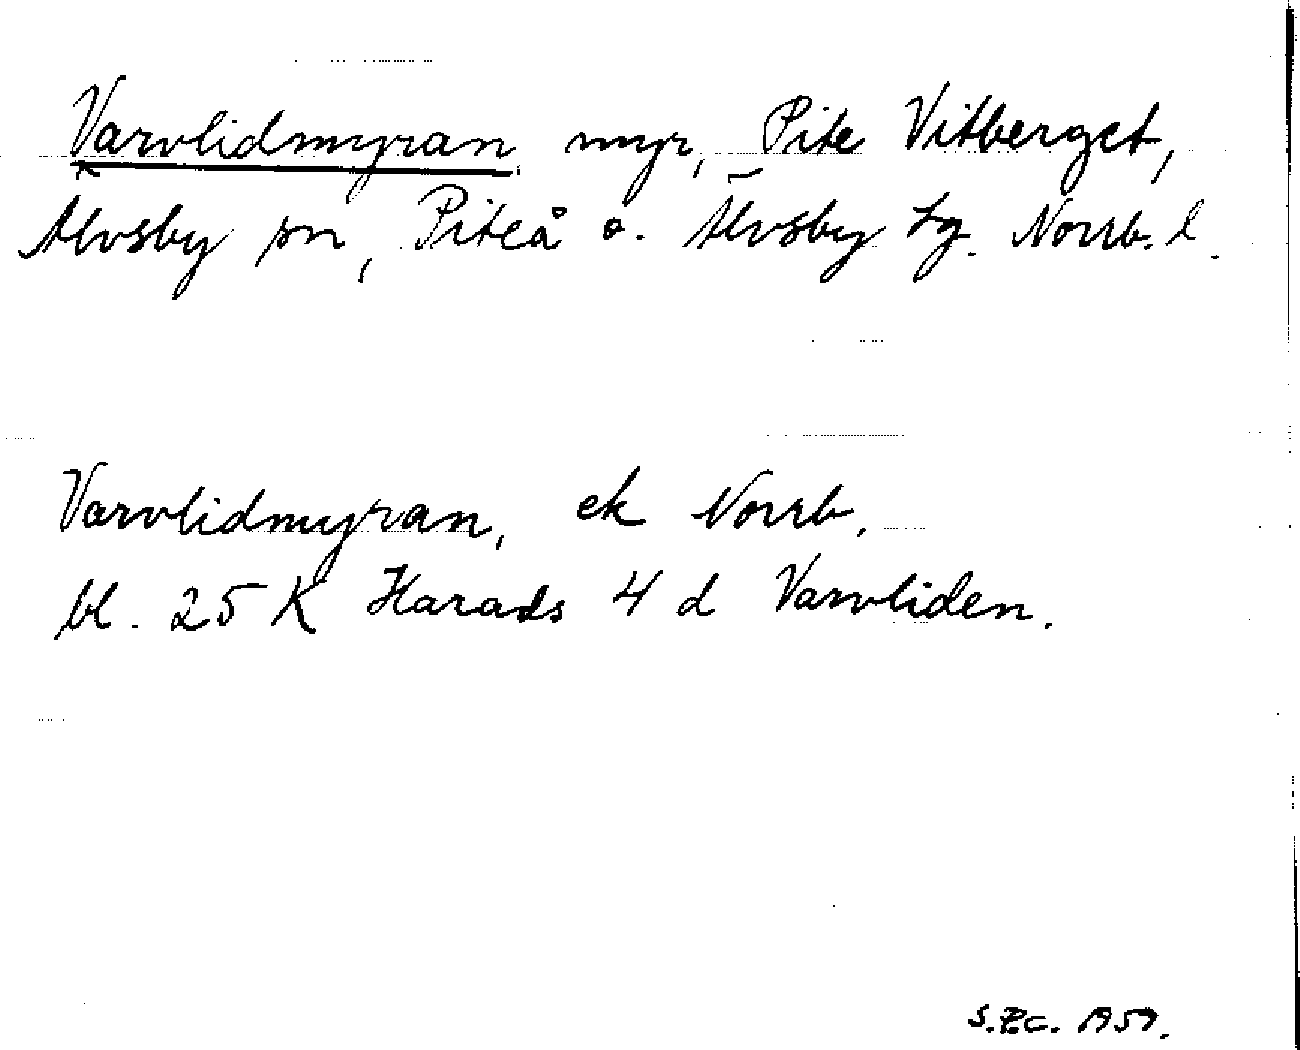 Varvlidmyran, myr, Pite Vitberget,
Älvsby sn, Piteå o. Älvsby tg. Norrb. l.
Varvlidmyran, ek Norrb.
bl. 25 K Harads 4 d Varvliden.
1959.